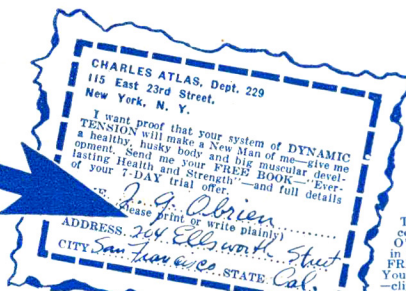 CHARLES ATLAS, Dept. 229
115 East 23rd Street,
New York, N. Y.
I want proof that your system of DYNAMIC
TENSION will make a New Man of me—give me
a healthy, husky body and big muscular devel-
opment. Send me your FREE BOOK—"Ever-
lasting Health and Strength"—and full details
of your 7-DAY trial offer.
J. G. Obrien
(Please print or write plainly)
ADDRESS. 264 Ellsworth Street
CITY San Francisco STATE Cal.
T
c
O
in
FR
You
—cli